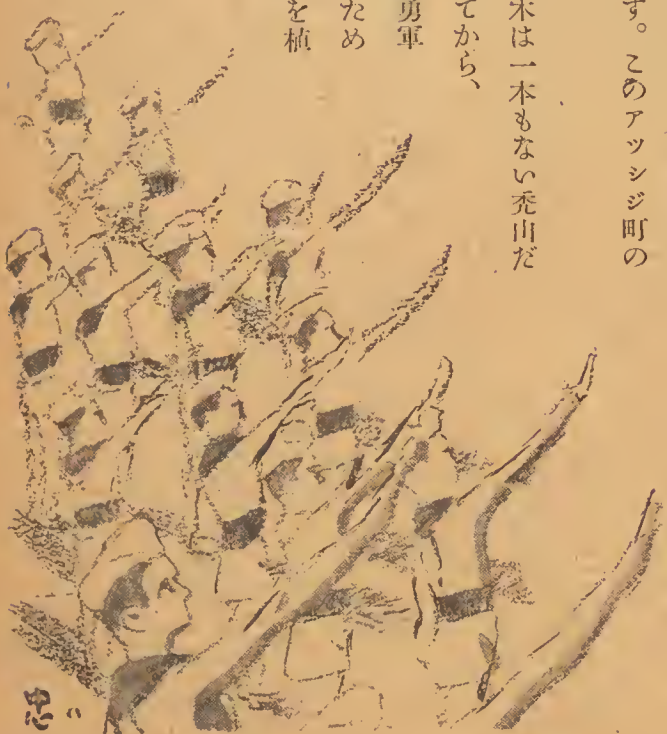 す。このアッシジ町の
木は一本もない禿山だ
てから、
勇軍
ため
を植
忠